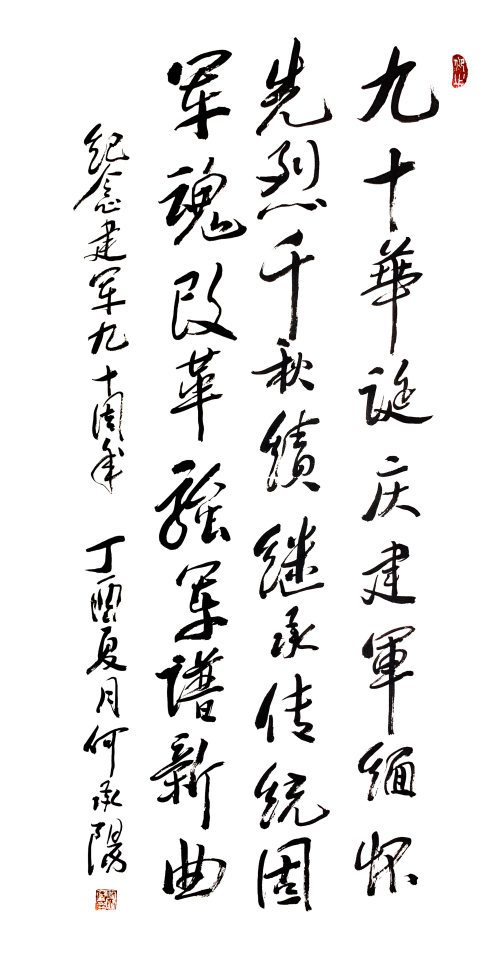 九十華诞庆建軍缅怀
先烈千秋績继承传统固
军魂改革强军谱新曲
纪念建军九十周年 丁酉夏月何承陽